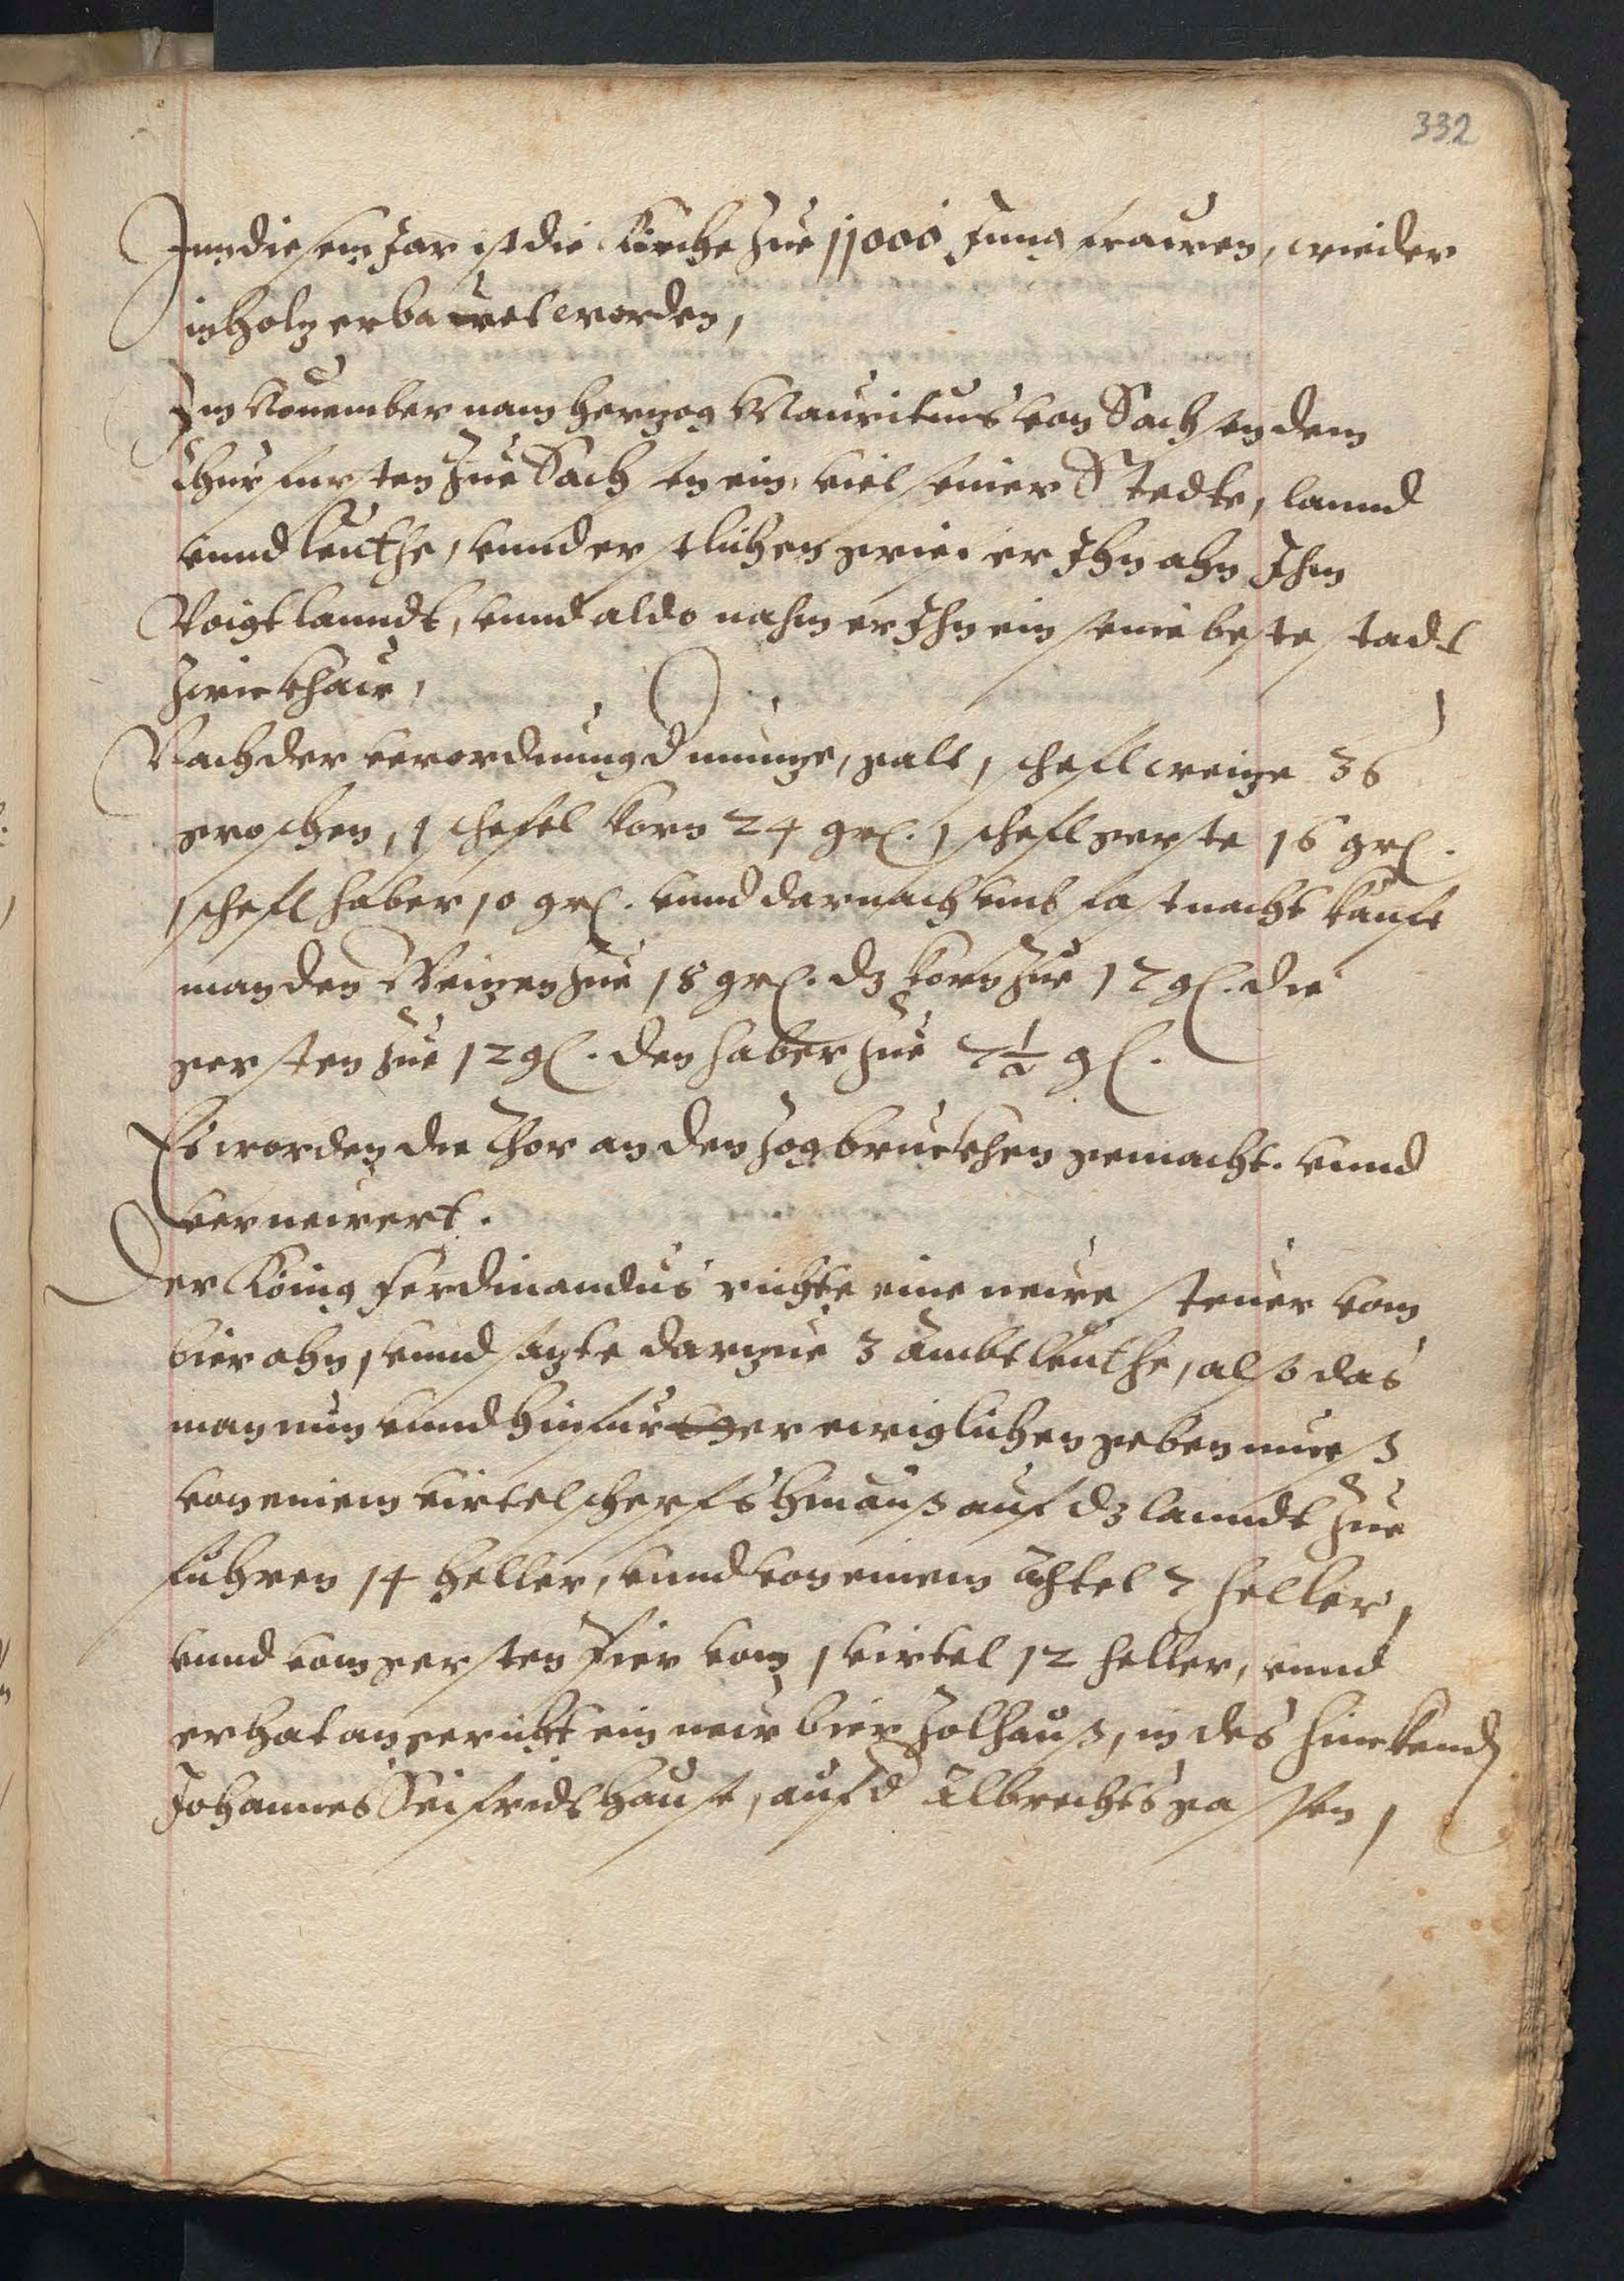 332
Inn diesem Jar ist die Kirche zue 11000 Jungfrauen, wieder
in holz erbauet worden,
Im Nouember nam herzog Mauritius von Sachsen dem
Churfursten zue Sachsen ein, viel seiner Stedte, lannd
vnnd leuthe, vnnd erstlichen grief er Ihn ahn Ihm
Voigtlanndt, vnnd aldo nahm er Ihn ein seine beste stadt
Zwickhaw,
Nach der verordnung d muntze, galt 1 schefl weitze 36
groschen, 1 schefel korn 24 grl. 1 schefl gerste 16 grl.
1 schefl haber 10 grl. vnnd darnach vmb fastnacht kaufte
man den Weitzen zue 18 grl. dz korn zue 12 gl. die
gersten zue 12 gl. den haber zue 7½ gl.
Es worden die Thor an den Zogbruckhen gemacht. vnnd
vernewert.
Der König Ferdinandus richte eine newe steuer vom
bier ahn, vnnd sazte darzue 3 Ambtleuthe, also das
man nun vnnd hinfur ewiglichen geben muess
von einem virtel scherfs hinauss auf dz lanndt zue
fuhren 14 heller, vnnd von einem Achtel 7 heller,
vnnd vom gersten bier vom 1 virtel 12 heller, vnnd
er hat angericht ein new bier Zolhauss, in des hinckendn
Johannes Seifridt hause, auf d Albrechtsgassen,